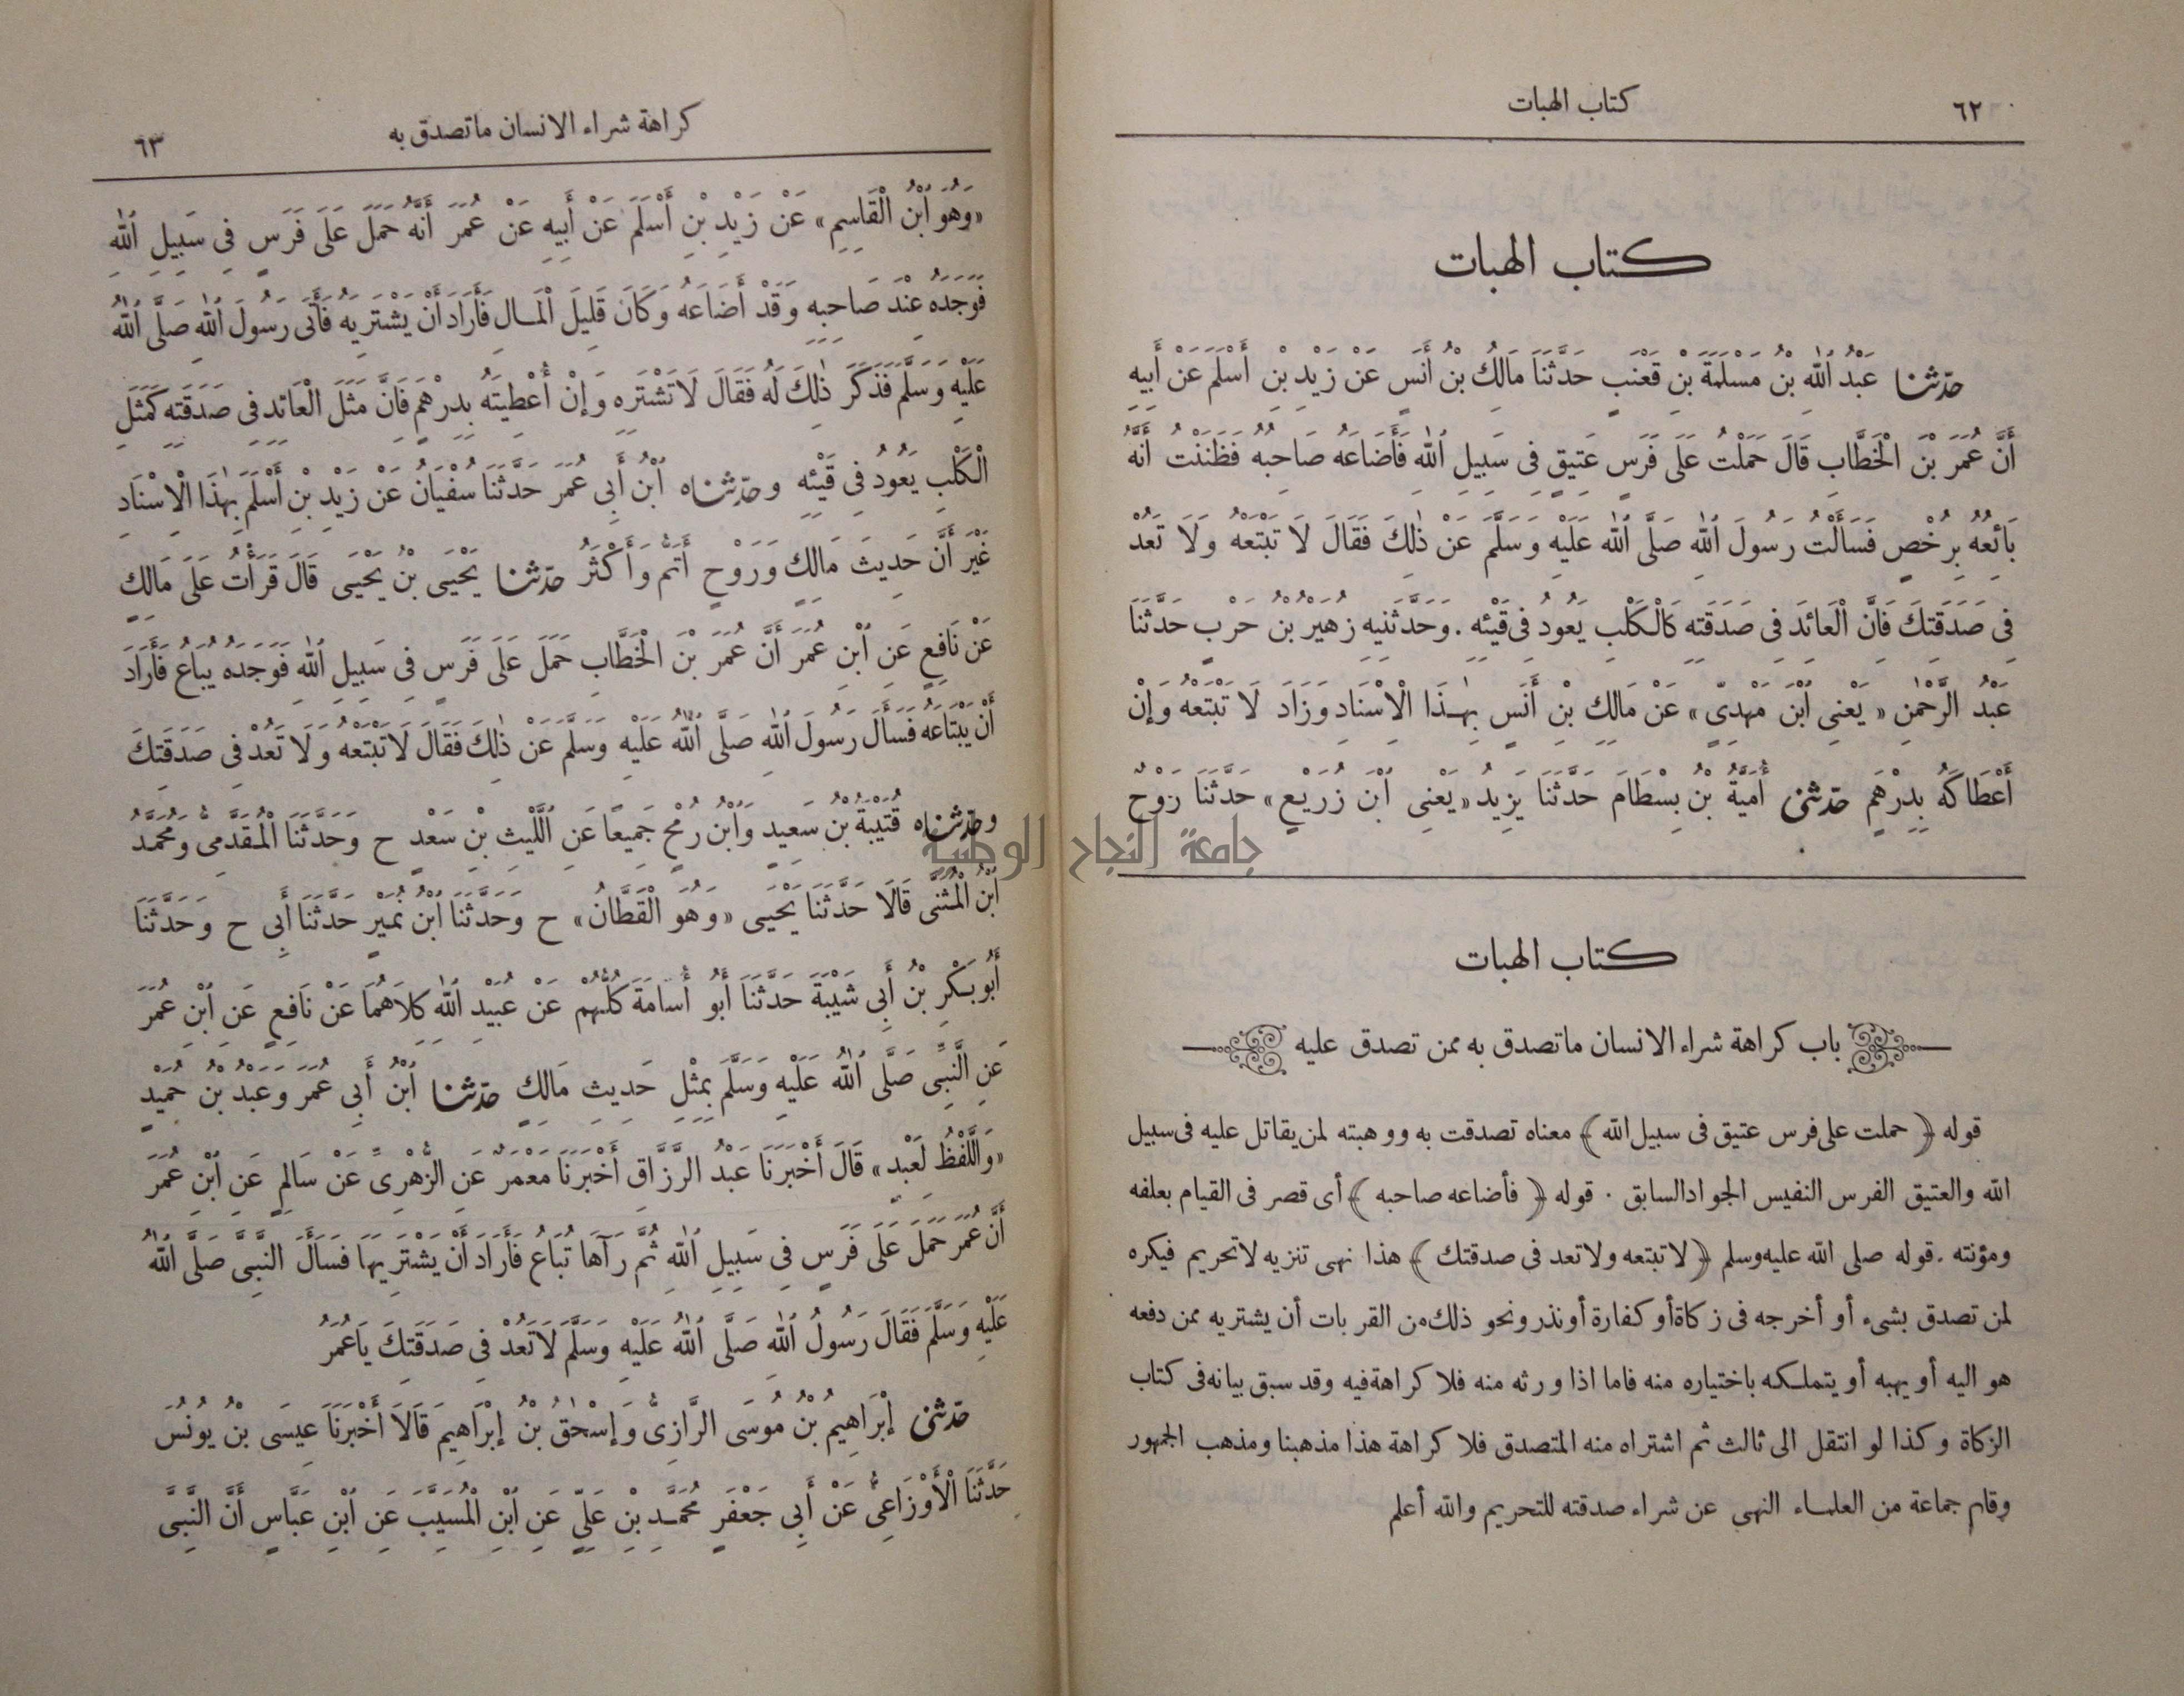 ٦٢
كتاب الهبات
كتاب الهبات
حدثنا عَبْدُ اللهِ بْنُ مَسْلَمَةَ بْنِ قَعْنَبٍ حَدَّثَنَا مَالِكُ بْنُ أَنَسٍ عَنْ زَيْدِ بْنِ أَسْلَمَ عَنْ أَبِيهِ
أَنَّ عُمَرَ بْنَ الْخَطَّابِ قَالَ حَمَلْتُ عَلَى فَرَسٍ عَتِيقٍ فِى سَبِيلِ اللهِ فَأَضَاعَهُ صَاحِبُهُ فَظَنَنْتُ أَنَّهُ
بَائِعُهُ بِرُخْصٍ فَسَأَلْتُ رَسُولَ اللهِ صَلَّى اللهُ عَلَيْهِ وَسَلَّمَ عَنْ ذٰلِكَ فَقَالَ لَا تَبْتَعْهُ وَلَا تَعُدْ
فِى صَدَقَتِكَ فَانَّ الْعَائِدَ فِى صَدَقَتِهِ كَالْكَلْبِ يَعُودُ فِى قَيْئِهِ . وَحَدَّثَنِيهِ زُهَيْرُ بْنُ حَرْبٍ حَدَّثَنَا
عَبْدُ الرَّحْمٰنِ «يَعْنِى ابْنَ مَهْدِىٍّ» عَنْ مَالِكِ بْنِ أَنَسٍ بِهٰذَا الْاِسْنَادِ وَزَادَ لَا تَبْتَعْهُ وَإِنْ
أَعْطَاكَهُ بِدِرْهَمٍ حدثنى أُمَيَّةُ بْنُ بِسْطَامَ حَدَّثَنَا يَزِيدُ «يَعْنِى ابْنَ زُرَيْعٍ» حَدَّثَنَا رَوْحٌ
كتاب الهبات
باب كراهة شراء الانسان ماتصدق به ممن تصدق عليه
قوله ﴿حملت على فرس عتيق فى سبيل الله﴾ معناه تصدقت به ووهبته لمن يقاتل عليه فى سبيل
الله والعتيق الفرس النفيس الجواد السابق . قوله ﴿فأضاعه صاحبه﴾ أى قصر فى القيام بعلفه
ومؤنته . قوله صلى الله عليه وسلم ﴿لاتبتعه ولاتعد فى صدقتك﴾ هذا نهى تنزيه لاتحريم فيكره
لمن تصدق بشىء أو أخرجه فى زكاة أو كفارة أو نذر ونحو ذلك من القربات أن يشتريه ممن دفعه
هو اليه أو يهبه أو يتملكه باختياره منه فاما اذا ورثه منه فلا كراهة فيه وقد سبق بيانه فى كتاب
الزكاة وكذا لو انتقل الى ثالث ثم اشتراه منه المتصدق فلا كراهة هذا مذهبنا ومذهب الجمهور
وقام جماعة من العلماء النهى عن شراء صدقته للتحريم والله أعلم
كراهة شراء الانسان ماتصدق به
٦٣
«وَهُوَ ابْنُ الْقَاسِمِ» عَنْ زَيْدِ بْنِ أَسْلَمَ عَنْ أَبِيهِ عَنْ عُمَرَ أَنَّهُ حَمَلَ عَلَى فَرَسٍ فِى سَبِيلِ اللهِ
فَوَجَدَهُ عِنْدَ صَاحِبِهِ وَقَدْ أَضَاعَهُ وَكَانَ قَلِيلَ الْمَالِ فَأَرَادَ أَنْ يَشْتَرِيَهُ فَأَتَى رَسُولَ اللهِ صَلَّى اللهُ
عَلَيْهِ وَسَلَّمَ فَذَكَرَ ذٰلِكَ لَهُ فَقَالَ لَاتَشْتَرِهِ وَإِنْ أُعْطِيتَهُ بِدِرْهَمٍ فَانَّ مَثَلَ الْعَائِدِ فِى صَدَقَتِهِ كَمَثَلِ
الْكَلْبِ يَعُودُ فِى قَيْئِهِ وحدثناه ابْنُ أَبِى عُمَرَ حَدَّثَنَا سُفْيَانُ عَنْ زَيْدِ بْنِ أَسْلَمَ بِهٰذَا الْاِسْنَادِ
غَيْرَ أَنَّ حَدِيثَ مَالِكٍ وَرَوْحٍ أَتَمُّ وَأَكْثَرُ حدثنا يَحْيَى بْنُ يَحْيَى قَالَ قَرَأْتُ عَلَى مَالِكٍ
عَنْ نَافِعٍ عَنِ ابْنِ عُمَرَ أَنَّ عُمَرَ بْنَ الْخَطَّابِ حَمَلَ عَلَى فَرَسٍ فِى سَبِيلِ اللهِ فَوَجَدَهُ يُبَاعُ فَأَرَادَ
أَنْ يَبْتَاعَهُ فَسَأَلَ رَسُولَ اللهِ صَلَّى اللهُ عَلَيْهِ وَسَلَّمَ عَنْ ذٰلِكَ فَقَالَ لَاتَبْتَعْهُ وَلَا تَعُدْ فِى صَدَقَتِكَ
وحدثناه قُتَيْبَةُ بْنُ سَعِيدٍ وَابْنُ رُمْحٍ جَمِيعًا عَنِ اللَّيْثِ بْنِ سَعْدٍ ح وَحَدَّثَنَا الْمُقَدَّمِىُّ وَمُحَمَّدُ
ابْنُ الْمُثَنَّى قَالَا حَدَّثَنَا يَحْيَى «وَهُوَ الْقَطَّانُ» ح وَحَدَّثَنَا ابْنُ نُمَيْرٍ حَدَّثَنَا أَبِى ح وَحَدَّثَنَا
أَبُو بَكْرِ بْنُ أَبِى شَيْبَةَ حَدَّثَنَا أَبُو أُسَامَةَ كُلُّهُمْ عَنْ عُبَيْدِ اللهِ كِلَاهُمَا عَنْ نَافِعٍ عَنِ ابْنِ عُمَرَ
عَنِ النَّبِىِّ صَلَّى اللهُ عَلَيْهِ وَسَلَّمَ بِمِثْلِ حَدِيثِ مَالِكٍ حدثنا ابْنُ أَبِى عُمَرَ وَعَبْدُ بْنُ حُمَيْدٍ
«وَاللَّفْظُ لِعَبْدٍ» قَالَ أَخْبَرَنَا عَبْدُ الرَّزَّاقِ أَخْبَرَنَا مَعْمَرٌ عَنِ الزُّهْرِىِّ عَنْ سَالِمٍ عَنِ ابْنِ عُمَرَ
أَنَّ عُمَرَ حَمَلَ عَلَى فَرَسٍ فِى سَبِيلِ اللهِ ثُمَّ رَآهَا تُبَاعُ فَأَرَادَ أَنْ يَشْتَرِيَهَا فَسَأَلَ النَّبِىَّ صَلَّى اللهُ
عَلَيْهِ وَسَلَّمَ فَقَالَ رَسُولُ اللهِ صَلَّى اللهُ عَلَيْهِ وَسَلَّمَ لَاتَعُدْ فِى صَدَقَتِكَ يَاعُمَرُ
حدثنى إِبْرَاهِيمُ بْنُ مُوسَى الرَّازِىُّ وَإِسْحٰقُ بْنُ إِبْرَاهِيمَ قَالَا أَخْبَرَنَا عِيسَى بْنُ يُونُسَ
حَدَّثَنَا الْأَوْزَاعِىُّ عَنْ أَبِى جَعْفَرٍ مُحَمَّدِ بْنِ عَلِىٍّ عَنِ ابْنِ الْمُسَيَّبِ عَنِ ابْنِ عَبَّاسٍ أَنَّ النَّبِىَّ
جامعة النجاح الوطنية